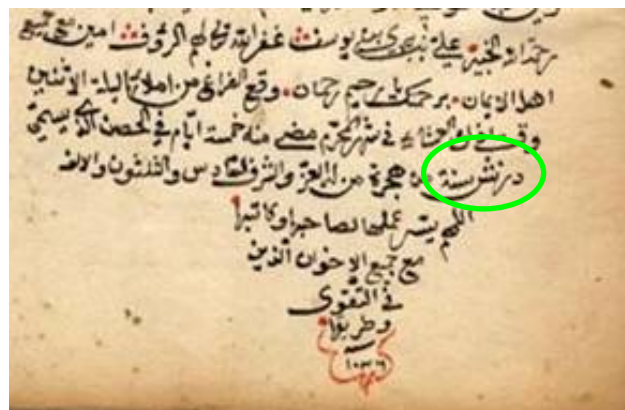 رحمة الخبير علي بن يوسف غفر الله تعالى لهم الرؤف امين مع جميع
اهل الايمان برحمتك يا رحيم رحمان وقع الفراغ من املائه ليلة الاثنين
وقت في شهر المحرم مضى منه خمسة ايام في الحصن الذي يسمى
درنش سنة من هجرة من له العز والشرف السادس والثلثون والالف
اللهم يسر عملها لصاحبها وكاتبها
مع جميع الاخوان الذين
في التقوى
١٠٣٦